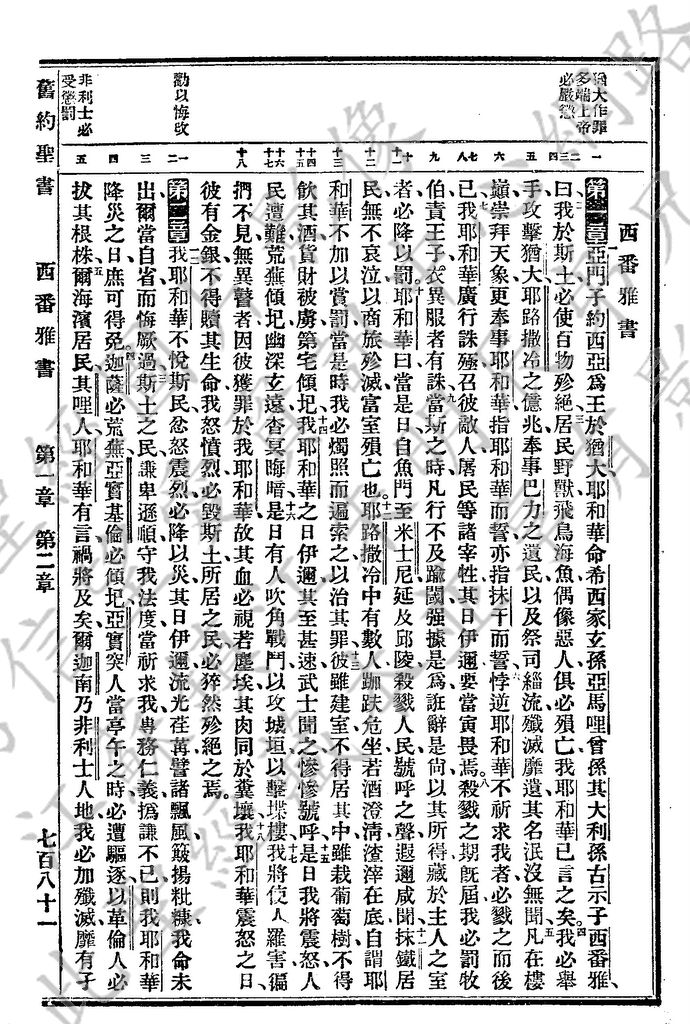 西番雅書
第一章亞門子約西亞爲王於猶大耶和華命希西家玄孫亞馬哩曾孫其大利孫古示子西番雅
曰我於斯土必使百物殄絕居民野獸飛鳥海魚偶像惡人俱必殞亡我耶和華已言之矣我必舉
手攻擊猶大耶路撒冷之億兆奉事巴力之遺民以及祭司緇流殲滅靡遺其名泯沒無聞凡在樓
巔崇拜天象更奉事耶和華指耶和華而誓亦指抹干而誓悖逆耶和華不祈求我者必戮之而後
已我耶和華廣行誅殛召彼敵人屠民等諸宰牲其日伊邇要當寅畏焉殺戮之期旣屆我必罰牧
伯責王子衣異服者有誅當斯之時凡行不及踰閾强據是爲誑辭是尙以其所得藏於主人之室
者必降以罰耶和華曰當是日自魚門至米士尼延及邱陵殺戮人民號呼之聲遐邇咸聞抹鐵居
民無不哀泣以商旅殄滅富室殞亡也耶路撒冷中有數人跏趺危坐若酒澄淸渣滓在底自謂耶
和華不加以賞罰當是時我必燭照而遍索之以治其罪彼雖建室不得居其中雖栽葡萄樹不得
飮其酒貨財被虜第宅傾圮我耶和華之日伊邇其至甚速武士聞之慘慘號呼是日我將震怒人
民遭難荒蕪傾圮幽深玄遠杳冥晦暗是日有人吹角戰鬥以攻城垣以擊堞樓我將使人羅害徧
捫不見無異瞽者因彼獲罪於我耶和華故其血必視若塵埃其肉同於糞壤我耶和華震怒之日
彼有金銀不得贖其生命我怒憤烈必毀斯土所居之民必猝然殄絕之焉
第二章我耶和華不悅斯民忿怒震烈必降以災其日伊邇流光荏苒譬諸飄風簸揚粃糠我命未
出爾當自省而悔厥過斯土之民謙卑遜順守我法度當祈求我專務仁義撝謙不已則我耶和華
降災之日庶可得免迦薩必荒蕪亞實基倫必傾圮亞實突人當亭午之時必遭驅逐以革倫人必
拔其根株爾海濱居民其哩人耶和華有言禍將及矣爾迦南乃非利士人地我必加殲滅靡有子
猶大作罪
多端上帝
必嚴懲
勸以悔改
非利士必
受懲罰
舊約聖書 西番雅書 第一章 第二章 七百八十一